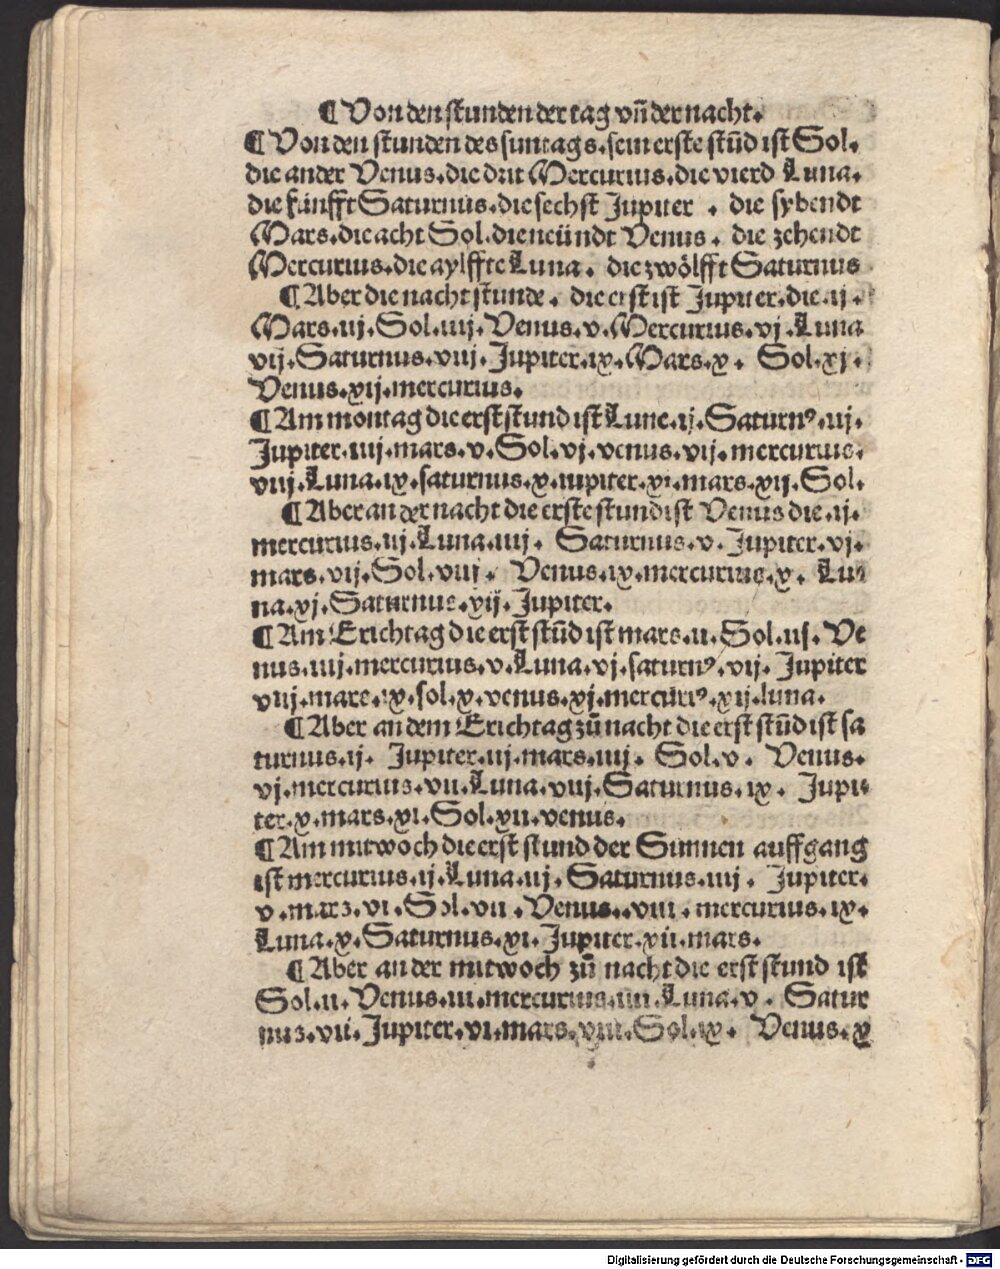 ¶ Von den stunden der tag vn̄ der nacht.
¶ Von den stunden des suntags. sein erste stūd ist Sol.
die ander Venus. die drit Mercurius. die vierd Luna.
die fünfft Saturnus. die sechst Jupiter . die sybendt
Mars. die acht Sol. die neündt Venus. die zehendt
Mercurius. die aylffte Luna. die zwölfft Saturnus
¶ Aber die nacht stunde. die erst ist Jupiter. die .ij.
Mars. iij. Sol. iiij. Venus. v. Mercurius. vj. Luna
vij. Saturnus. viij. Jupiter. ix. Mars. x. Sol. xj.
Venus. xij. mercurius.
¶ Am montag die erst stund ist Lune. ij. Saturnꝰ. iij.
Jupiter. iiij. mars. v. Sol. vj. venus. vij. mercurius.
viij. Luna. ix. saturnus. x. iupiter. xi. mars. xij. Sol.
¶ Aber an der nacht die erste stund ist Venus die .ij.
mercurius. iij. Luna. iiij. Saturnus. v. Jupiter. vj.
mars. vij. Sol. viij. Venus. ix. mercurius. x. Lu⸗
na. xj. Saturnus. xij. Jupiter.
¶ Am Erichtag die erst stūd ist mars. ii. Sol. iij. Ve
nus. iiij. mercurius. v. Luna. vj. saturnꝰ. vij. Jupiter
viij. mars. ix. sol. x. venus. xj. mercuriꝰ. xij. luna.
¶ Aber an dem Erichtag zū nacht die erst stūd ist sa
turnus. ij. Jupiter. iij. mars. iiij. Sol. v. Venus.
vj. mercurius. vii. Luna. viij. Saturnus. ix. Jupi⸗
ter. x. mars. xi. Sol. xii. venus.
¶ Am mitwoch die erst stund der Sunnen auffgang
ist mercurius. ij. Luna. iij. Saturnus. iiij. Jupiter.
v. mars. vi. Sol. vii. Venus.. viii. mercurius. ix.
Luna. x. Saturnus. xi. Jupiter. xii. mars.
¶ Aber an der mitwoch zū nacht die erst stund ist
Sol. ii. Venus. iii. mercurius. iiii. Luna. v. Satur
nus. vii. Jupiter. vi. mars. viii. Sol. ix. Venus. x
Digitalisierung gefördert durch die Deutsche Forschungsgemeinschaft - DFG